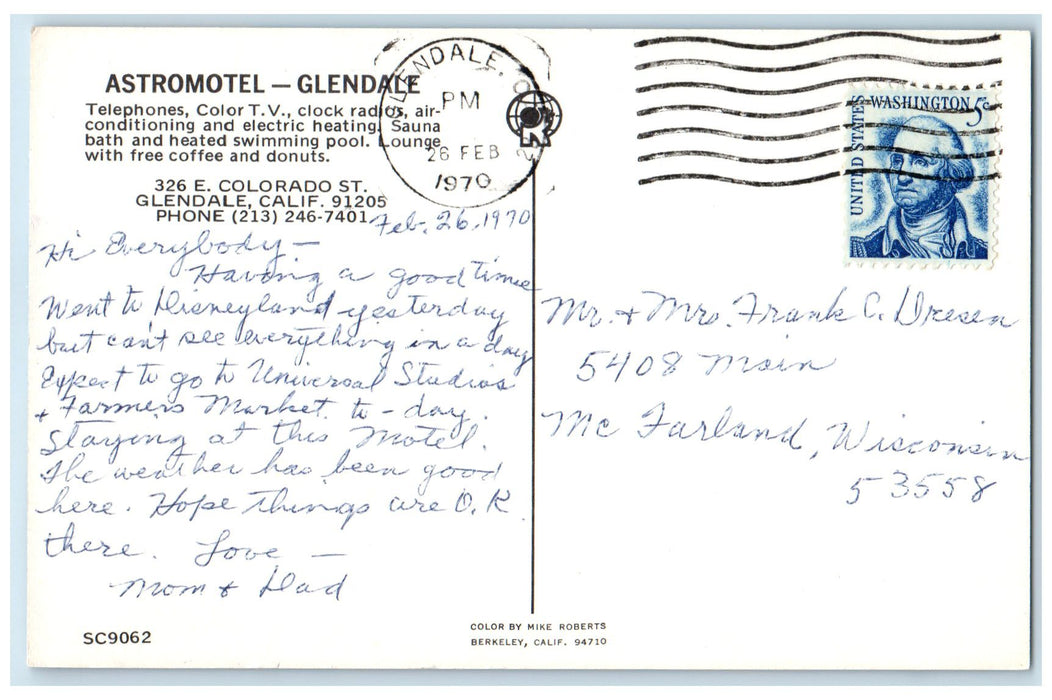 ASTROMOTEL — GLENDALE
Telephones, Color T.V., clock radios, air-
conditioning and electric heating. Sauna
bath and heated swimming pool. Lounge
with free coffee and donuts.
326 E. COLORADO ST.
GLENDALE, CALIF. 91205
PHONE (213) 246-7401
GLENDALE, C
PM
26 FEB
1970
UNITED STATES
WASHINGTON 5c
Feb. 26, 1970
Hi Everybody —
Having a good time
Went to Disneyland yesterday
but can't see everything in a day
Expect to go to Universal Studios
+ Farmers Market to-day.
Staying at this Motel.
The weather has been good
here. Hope things are O.K.
there. Love —
Mom & Dad
Mr. + Mrs. Frank C. Dresen
5408 Main
Mc Farland, Wisconsin
53558
SC9062
COLOR BY MIKE ROBERTS
BERKELEY, CALIF. 94710